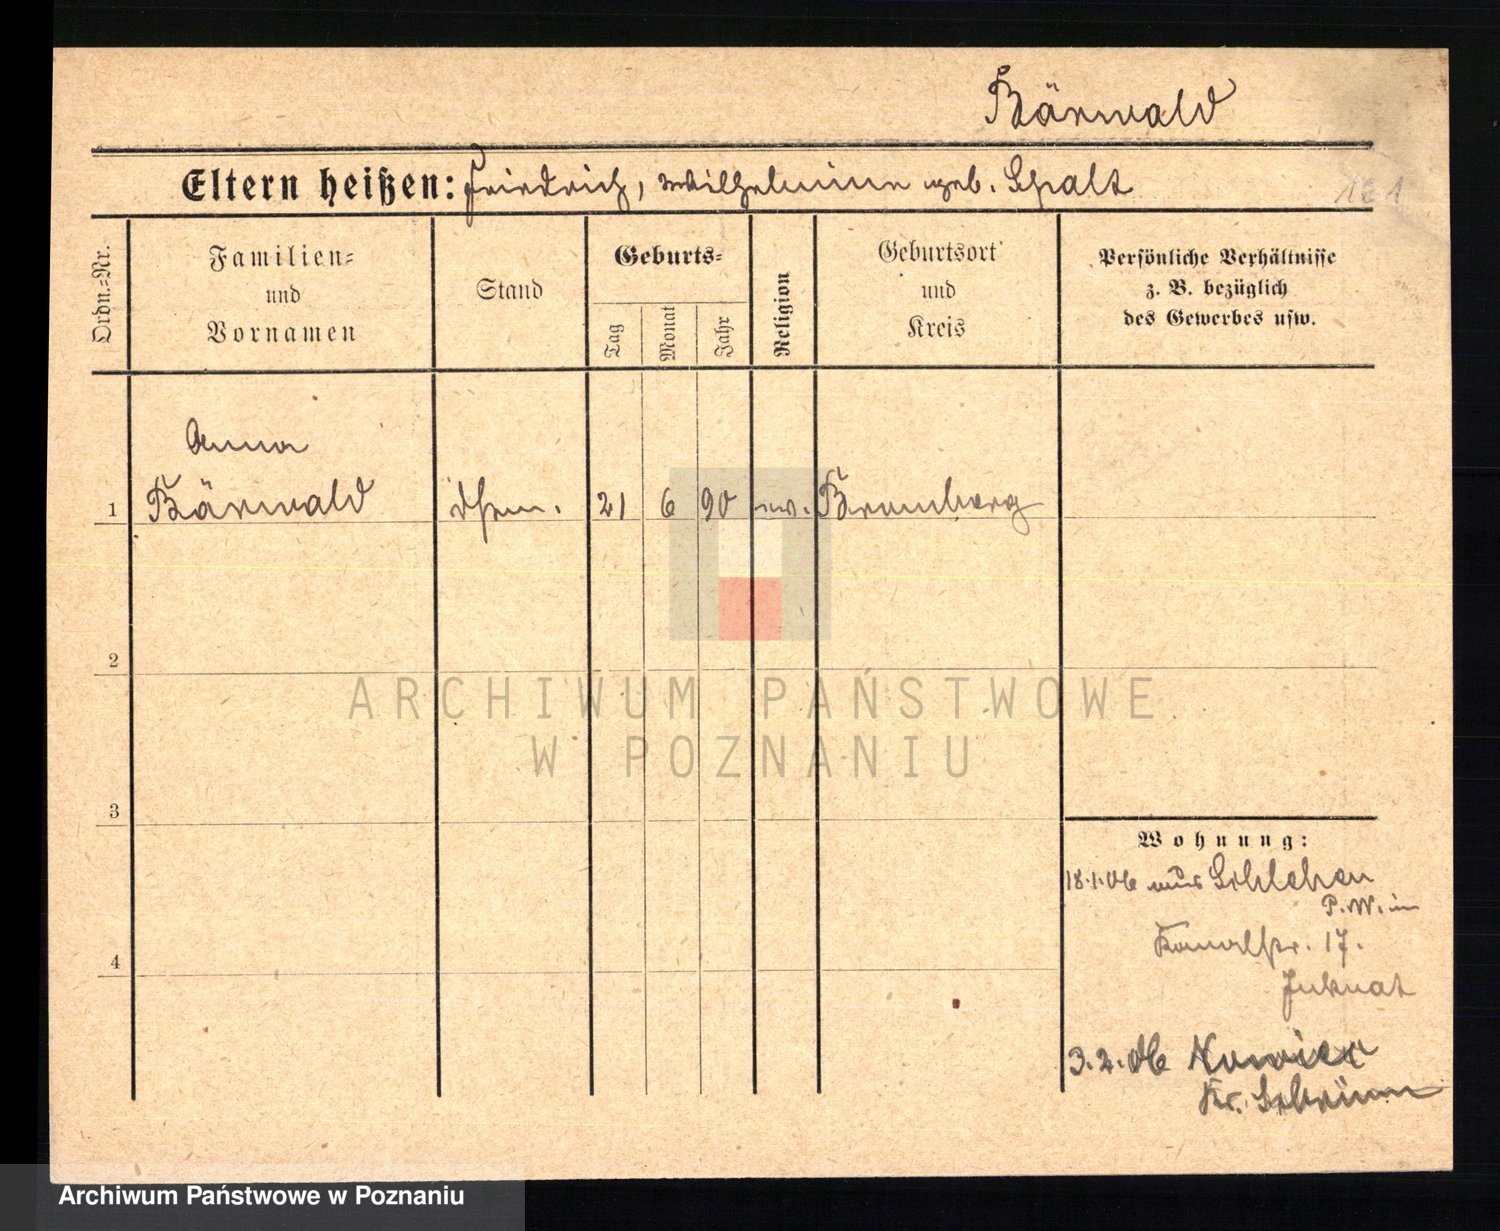 Bärwald
Eltern heißen: Friedrich, Wilhelmine geb. Spalt
Ordn.-Nr.
Familien-
und
Vornamen
Stand
Geburts-
Tag
Monat
Jahr
Religion
Geburtsort
und
Kreis
Persönliche Verhältnisse
z. B. bezüglich
des Gewerbes usw.
Anna
1 Bärwald 21 6 90 ev. Bromberg
2
3
4
Wohnung:
18.1.06 aus Schlehen
P. W. in
Kanalstr. 17.
3.2.06
Kr. Schrimm
ARCHIWUM PAŃSTWOWE
W POZNANIU
Archiwum Państwowe w Poznaniu